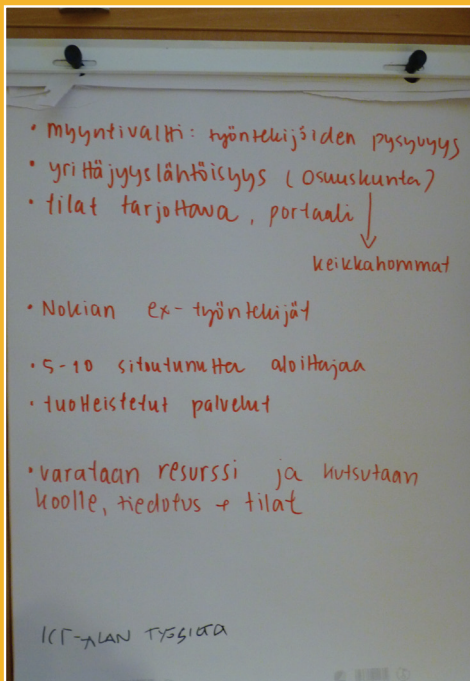 • myyntivaltti: työntekijöiden pysyvyys
• yrittäjyyslähtöisyys (osuuskunta)
• tilat tarjottava, portaali
keikkahommat
• Nokian ex-työntekijät
• 5-10 sitoutunutta aloittajaa
• tuotteistetut palvelut
• varataan resurssi ja kutsutaan
koolle, tiedotus + tilat
ICT-ALAN TYÖSILTA